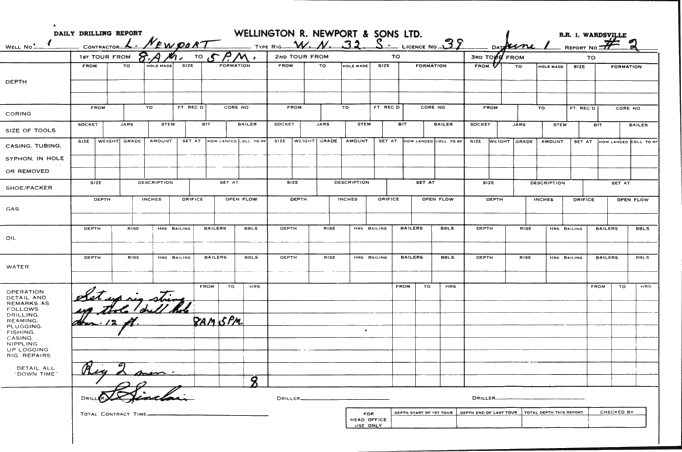 DAILY DRILLING REPORT WELLINGTON R. NEWPORT & SONS LTD. R.R. 1, WARDSVILLE
WELL NO. 1 CONTRACTOR L. NEWPORT TYPE RIG W. N. 32 S. LICENCE NO. 39 DATE June 1 REPORT NO. # 2
1ST TOUR FROM 8 A.M. TO 5 P.M. 2ND TOUR FROM TO 3RD TOUR FROM TO
FROM TO HOLE MADE SIZE FORMATION FROM TO HOLE MADE SIZE FORMATION FROM TO HOLE MADE SIZE FORMATION
DEPTH
FROM TO FT. REC'D CORE NO. FROM TO FT. REC'D CORE NO. FROM TO FT. REC'D CORE NO.
CORING
SOCKET JARS STEM BIT BAILER SOCKET JARS STEM BIT BAILER SOCKET JARS STEM BIT BAILER
SIZE OF TOOLS
SIZE WEIGHT GRADE AMOUNT SET AT HOW LANDED COLL TO RF SIZE WEIGHT GRADE AMOUNT SET AT HOW LANDED COLL TO RF SIZE WEIGHT GRADE AMOUNT SET AT HOW LANDED COLL TO RF
CASING, TUBING,
SYPHON, IN HOLE
OR REMOVED
SIZE DESCRIPTION SET AT SIZE DESCRIPTION SET AT SIZE DESCRIPTION SET AT
SHOE/PACKER
DEPTH INCHES ORIFICE OPEN FLOW DEPTH INCHES ORIFICE OPEN FLOW DEPTH INCHES ORIFICE OPEN FLOW
GAS
DEPTH RISE HRS BAILING BAILERS BBLS DEPTH RISE HRS BAILING BAILERS BBLS DEPTH RISE HRS BAILING BAILERS BBLS.
OIL
DEPTH RISE HRS BAILING BAILERS BBLS. DEPTH RISE HRS BAILING BAILERS BBLS DEPTH RISE HRS BAILING BAILERS BBLS
WATER
FROM TO HRS FROM TO HRS FROM TO HRS
OPERATION
DETAIL AND
REMARKS AS
FOLLOWS
DRILLING,
REAMING,
PLUGGING,
FISHING,
CASING,
NIPPLING,
UP LOGGING
RIG. REPAIRS
Set up rig string
up tools / drill hole
down 12 ft. 8AM 5PM
DETAIL ALL
"DOWN TIME"
Rig 2 men.
8
DRILLER L Sinclair DRILLER DRILLER
TOTAL CONTRACT TIME
FOR
HEAD OFFICE
USE ONLY
DEPTH START OF 1ST TOUR DEPTH END OF LAST TOUR TOTAL DEPTH THIS REPORT CHECKED BY